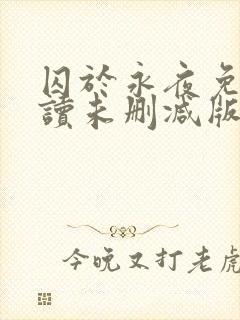 囚於永夜免
讀未刪減版
今晚又打老虎